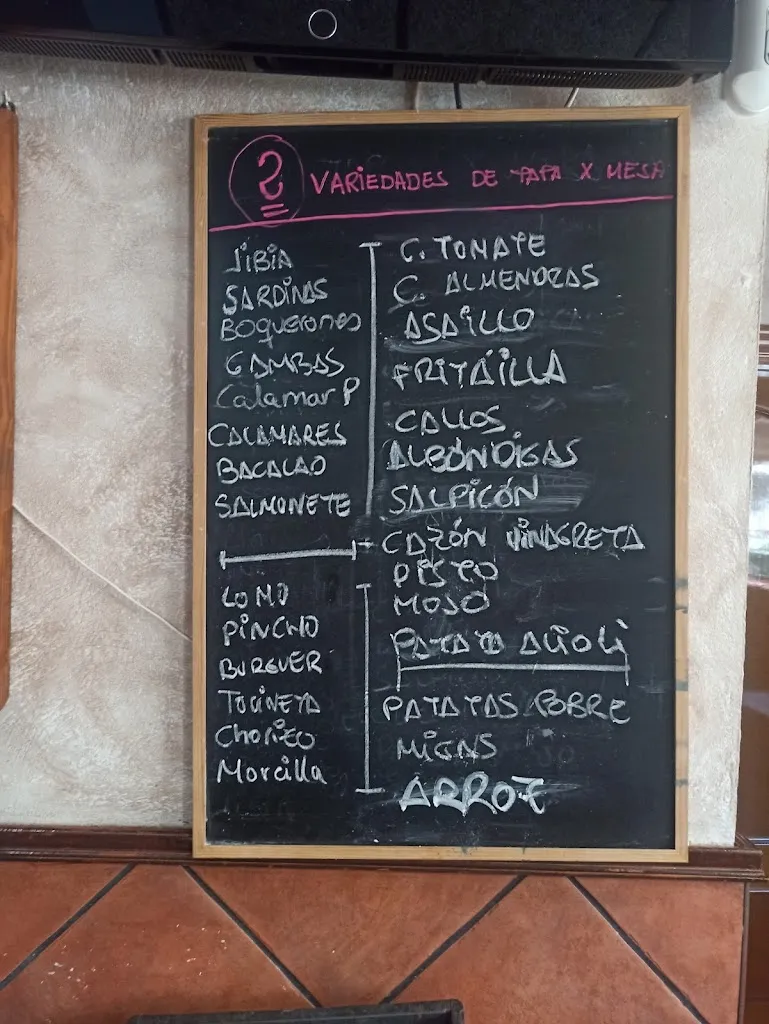 2 VARIEDADES DE TAPA X MESA
JIBIA
SARDINAS
Boquerones
GAMBAS
Calamar P
CALAMARES
BACALAO
SALMONETE
LOMO
PINCHO
BURGUER
TOCINETA
Chorizo
Morcilla
C. TOMATE
C. ALMENDRAS
ASAILLO
FRITAILLA
CALLOS
ALBÓNDIGAS
SALPICÓN
CAZÓN VINAGRETA
PISTO
MOJO
PATATA ALIOLI
PATATAS POBRE
MIGAS
ARROZ